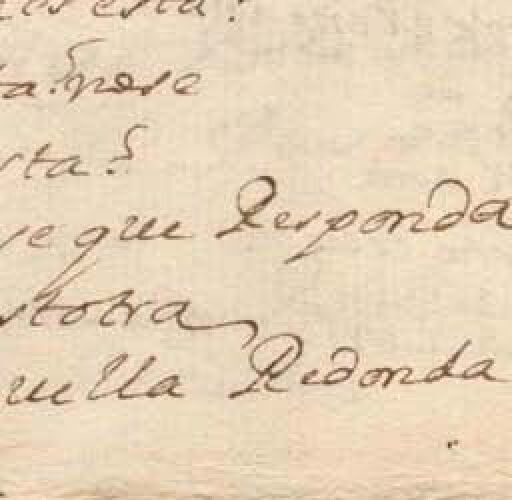 es esta?
ta? nose
sta?
se que Responda
stotra
uella Redonda